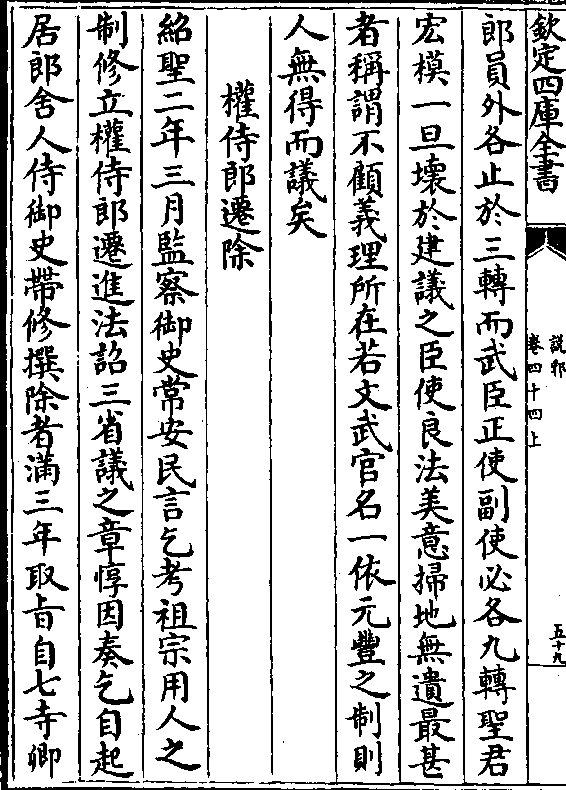 欽定四庫全書
說郛
卷四十四上
五十九
郎員外各止於三轉而武臣正使副使必各九轉聖君
宏模一旦壞於建議之臣使良法美意掃地無遺最甚
者稱謂不顧義理所在若文武官名一依元豐之制則
人無得而議矣
權侍郎遷除
紹聖二年三月監察御史常安民言乞考祖宗用人之
制修立權侍郎遷進法詔三省議之章惇因奏乞自起
居郎舍人侍御史帶修撰除者滿三年取旨自七寺卿